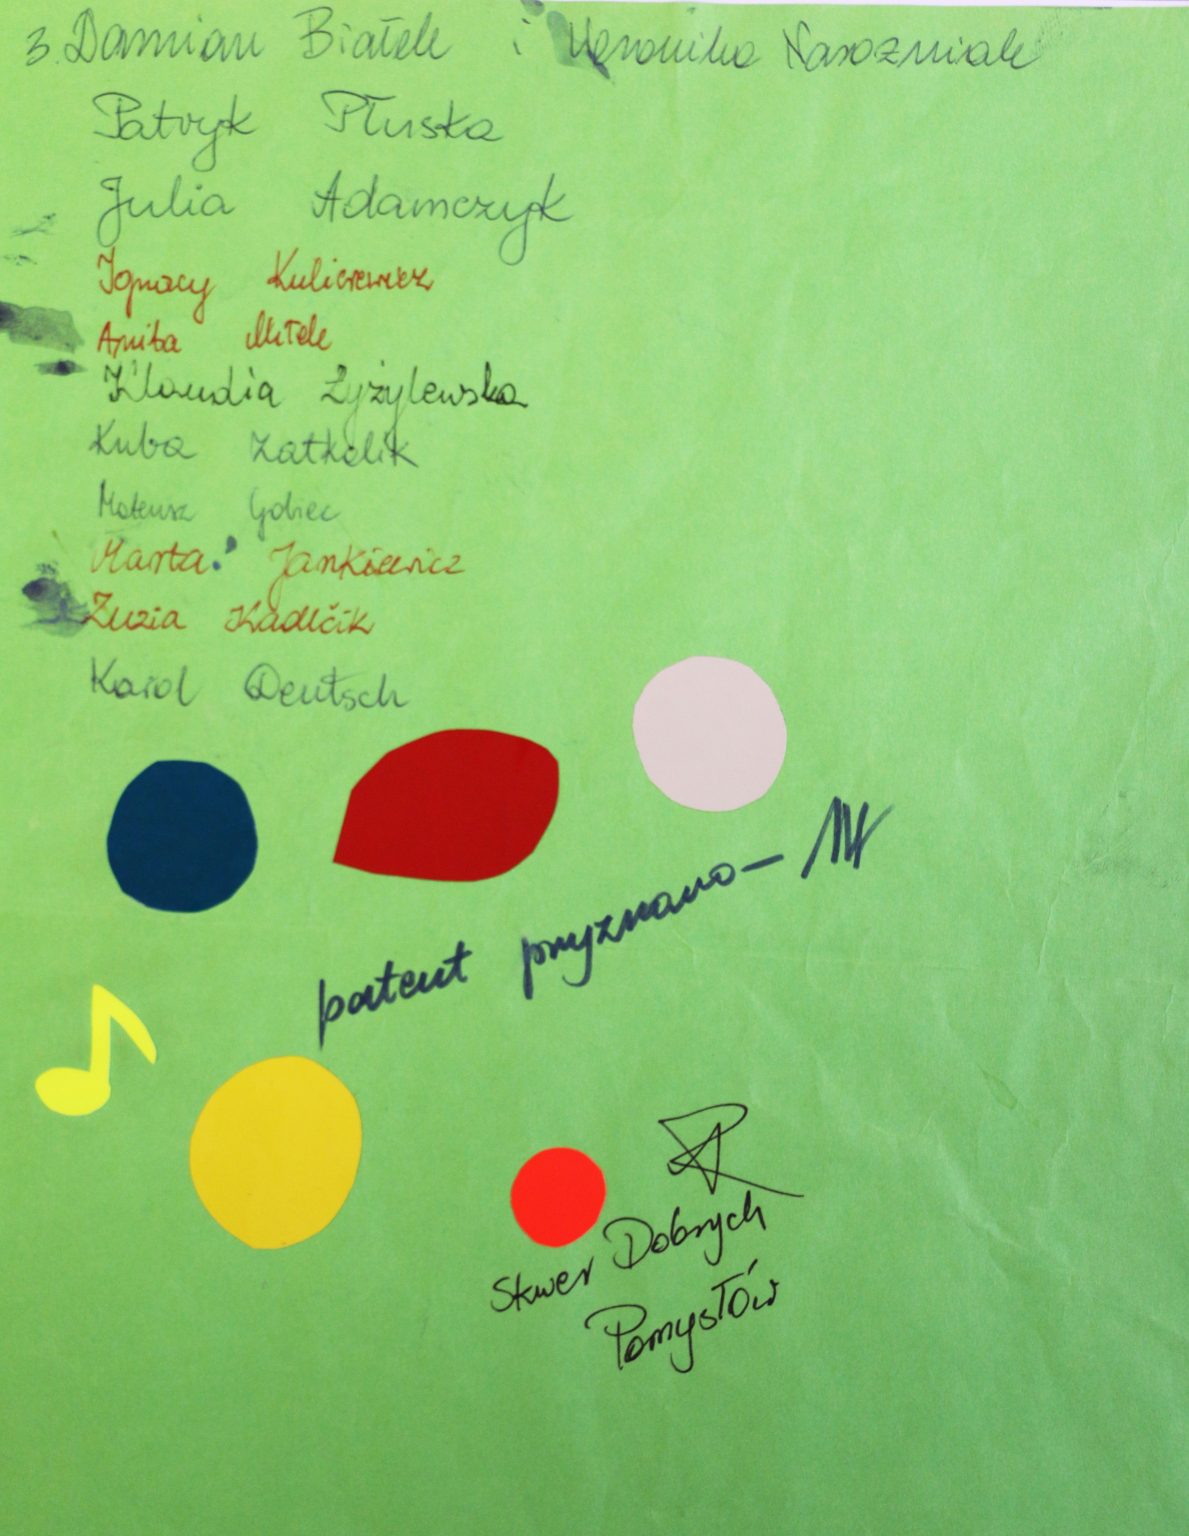 3. Damian Białek i Weronika
Patryk Pluska
Julia Adamczyk
Ignacy
Anita
Klaudia Łyżylewska
Kuba Zatkalik
Mateusz Gobiec
Marta Jankiewicz
Zuzia Kadlčik
Karol Deutsch
patent pryznano -
Skwer Dobrych
Pomysłów